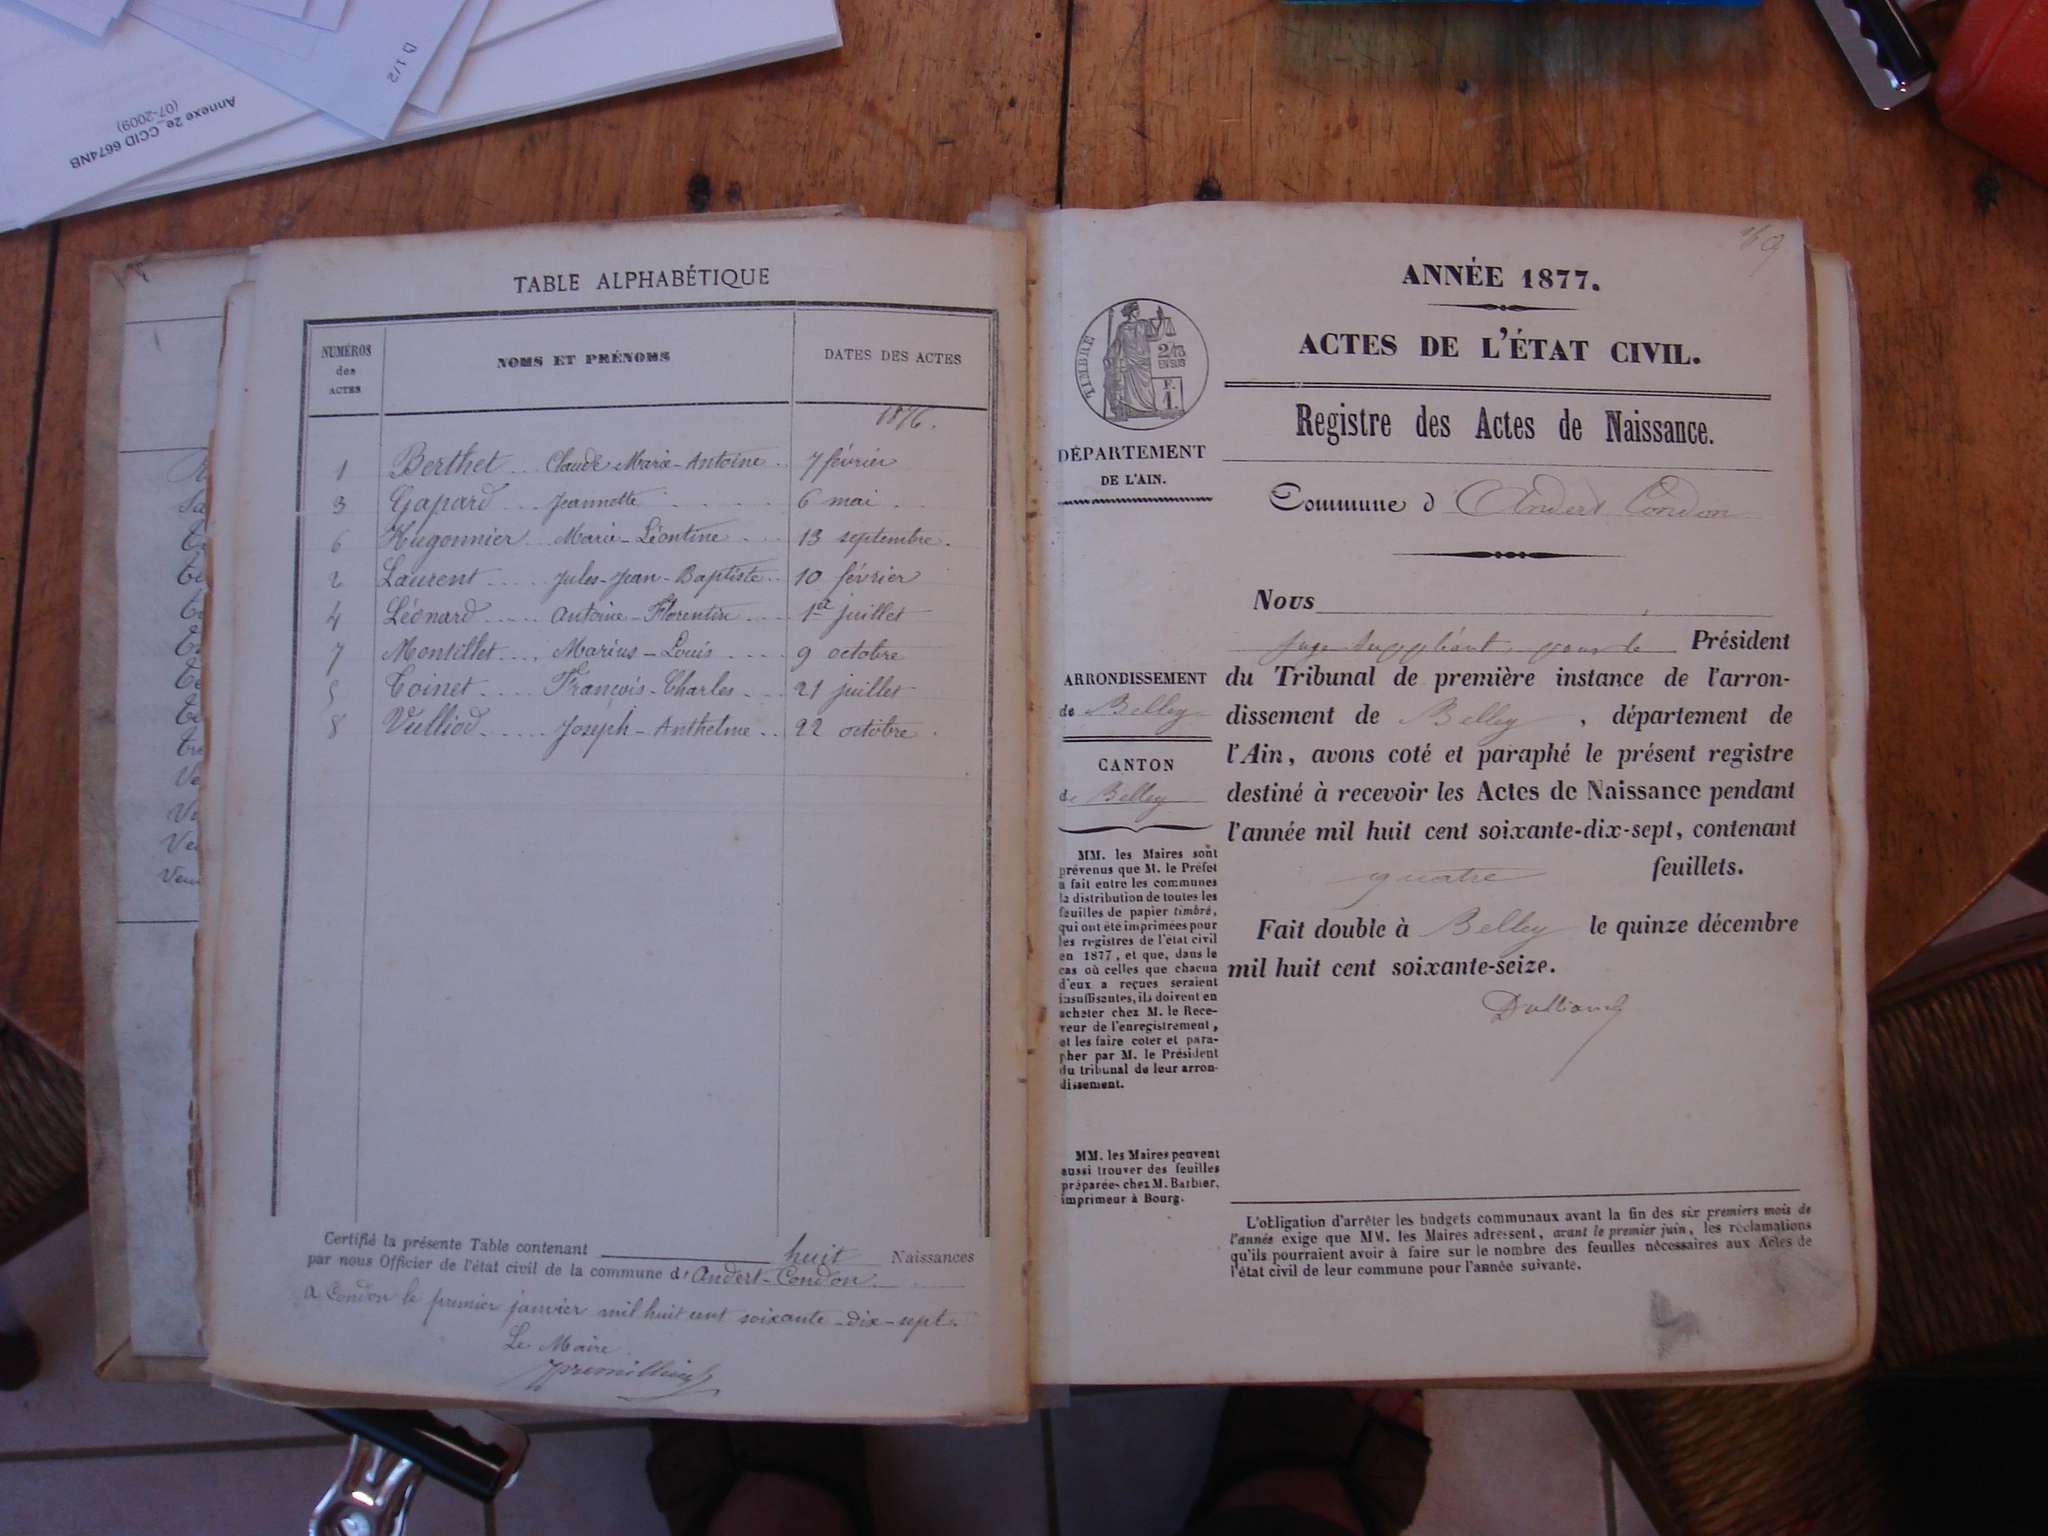 D 1/2
Annexe 2e_CCID 6674NB
(07-2009)
TABLE ALPHABÉTIQUE
NUMÉROS des ACTES
NOMS ET PRÉNOMS
DATES DES ACTES
1876.
1 Berthet Claude Marie-Antoine 7 février
3 Gapard Jeannette 6 mai
6 Hugonnier Marie-Léontine 13 septembre.
2 Laurent Jules-Jean-Baptiste 10 février
4 Léonard Antoine-Florentin 1er juillet
7 Montillet Marius-Louis 9 octobre
5 Coinet François-Charles 21 juillet
8 Vuilliod Joseph-Anthelme 22 octobre.
Certifié la présente Table contenant huit Naissances
par nous Officier de l'état civil de la commune d'Andert-Condon
a Condon le premier janvier mil huit cent soixante-dix-sept.
Le Maire
169
ANNÉE 1877.
ACTES DE L'ÉTAT CIVIL.
Registre des Actes de Naissance.
TIMBRE
2/10
EN SUS
F.
1.
DÉPARTEMENT
DE L'AIN.
Commune d'Andert Condon
Nous
juge suppléant pour le Président
du Tribunal de première instance de l'arron-
dissement de Belley, département de
l'Ain, avons coté et paraphé le présent registre
destiné à recevoir les Actes de Naissance pendant
l'année mil huit cent soixante-dix-sept, contenant
quatre feuillets.
Fait double à Belley le quinze décembre
mil huit cent soixante-seize.
ARRONDISSEMENT
de Belley
CANTON
de Belley
MM. les Maires sont
prévenus que M. le Préfet
a fait entre les communes
la distribution de toutes les
feuilles de papier timbré,
qui ont été imprimées pour
les registres de l'état civil
en 1877, et que, dans le
cas où celles que chacun
d'eux a reçues seraient
insuffisantes, ils doivent en
acheter chez M. le Rece-
veur de l'enregistrement,
et les faire coter et para-
pher par M. le Président
du tribunal de leur arron-
dissement.
MM. les Maires peuvent
aussi trouver des feuilles
préparées chez M. Barbier,
imprimeur à Bourg.
L'obligation d'arrêter les budgets communaux avant la fin des six premiers mois de
l'année exige que MM. les Maires adressent, avant le premier juin, les réclamations
qu'ils pourraient avoir à faire sur le nombre des feuilles nécessaires aux Actes de
l'état civil de leur commune pour l'année suivante.